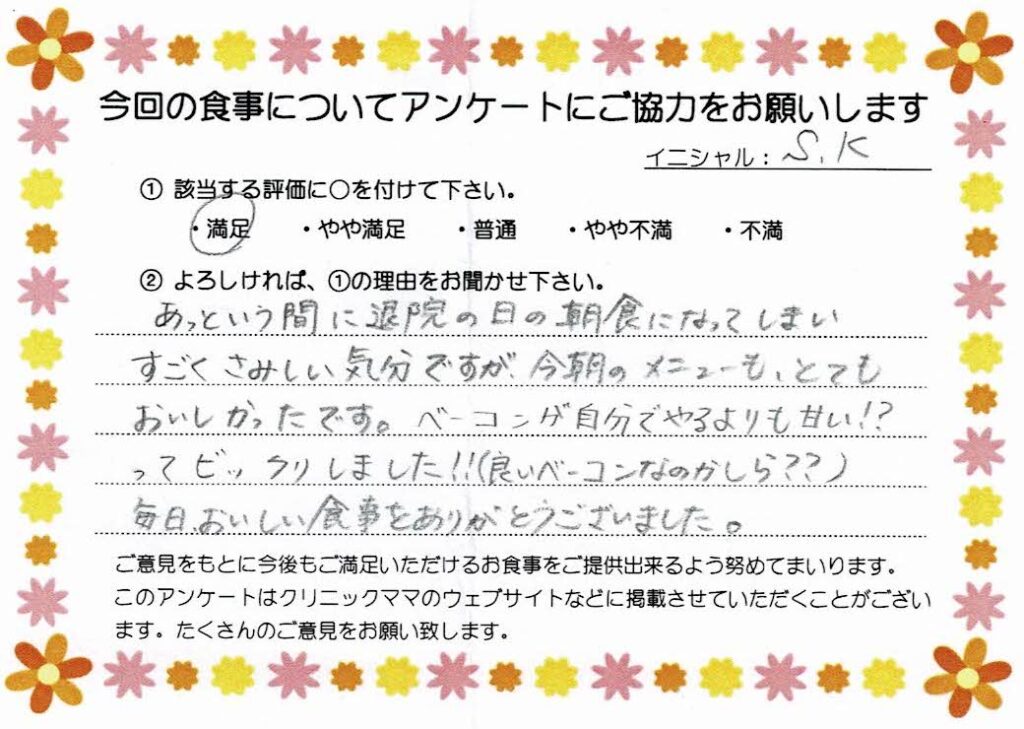 今回の食事についてアンケートにご協力をお願いします
イニシャル：S.K
① 該当する評価に○を付けて下さい。
・満足 ・やや満足 ・普通 ・やや不満 ・不満
② よろしければ、①の理由をお聞かせ下さい。
あっという間に退院の日の朝食になってしまい
すごくさみしい気分ですが、今朝のメニューも、とても
おいしかったです。ベーコンが自分でやるよりも甘い!?
ってビックリしました!!(良いベーコンなのかしら??)
毎日、おいしい食事をありがとうございました。
ご意見をもとに今後もご満足いただけるお食事をご提供出来るよう努めてまいります。
このアンケートはクリニックママのウェブサイトなどに掲載させていただくことがござい
ます。たくさんのご意見をお願い致します。